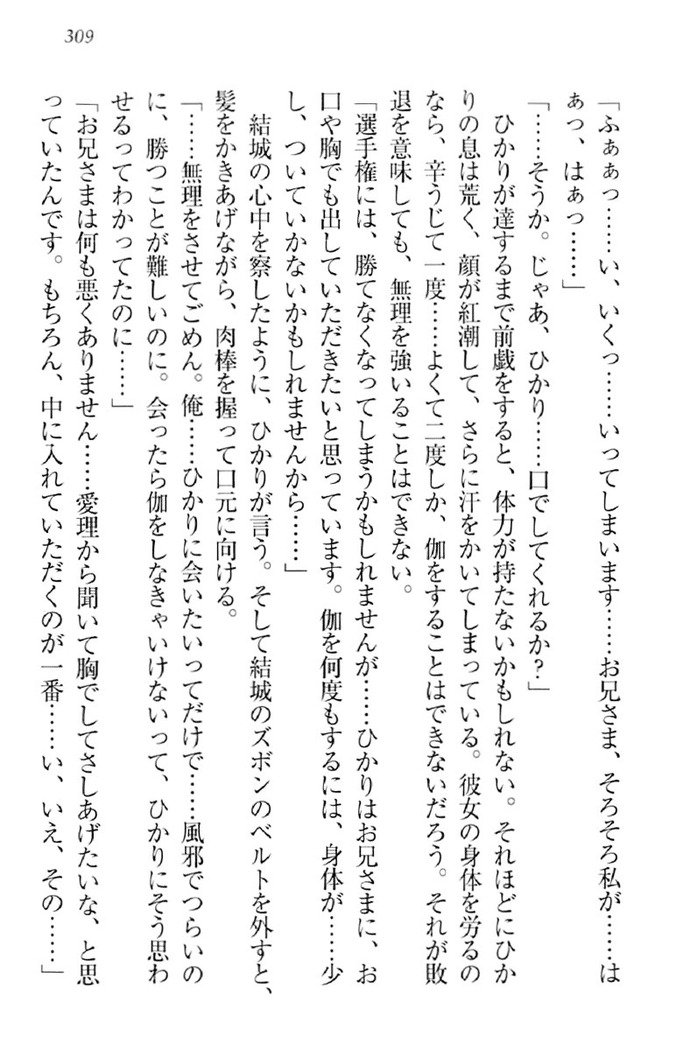 309
「ふぁぁっ……い、いくっ……いってしまいます……お兄さま、そろそろ私が……は
ぁっ、はぁっ……」
「……そうか。じゃあ、ひかり……口でしてくれるか？」
ひかりが達するまで前戯をすると、体力が持たないかもしれない。それほどにひか
りの息は荒く、顔が紅潮して、さらに汗をかいてしまっている。彼女の身体を労るの
なら、辛うじて一度……よくて二度しか、伽をすることはできないだろう。それが敗
退を意味しても、無理を強いることはできない。
「選手権には、勝てなくなってしまうかもしれませんが……ひかりはお兄さまに、お
口や胸でも出していただきたいと思っています。伽を何度もするには、身体が……少
し、ついていかないかもしれませんから……」
結城の心中を察したように、ひかりが言う。そして結城のズボンのベルトを外すと、
髪をかきあげながら、肉棒を握って口元に向ける。
「……無理をさせてごめん。俺……ひかりに会いたいってだけで……風邪でつらいの
に、勝つことが難しいのに。会ったら伽をしなきゃいけないって、ひかりにそう思わ
せるってわかってたのに……」
「お兄さまは何も悪くありません……愛理から聞いて胸でしてさしあげたいな、と思
っていたんです。もちろん、中に入れていただくのが一番……い、いえ、その……」